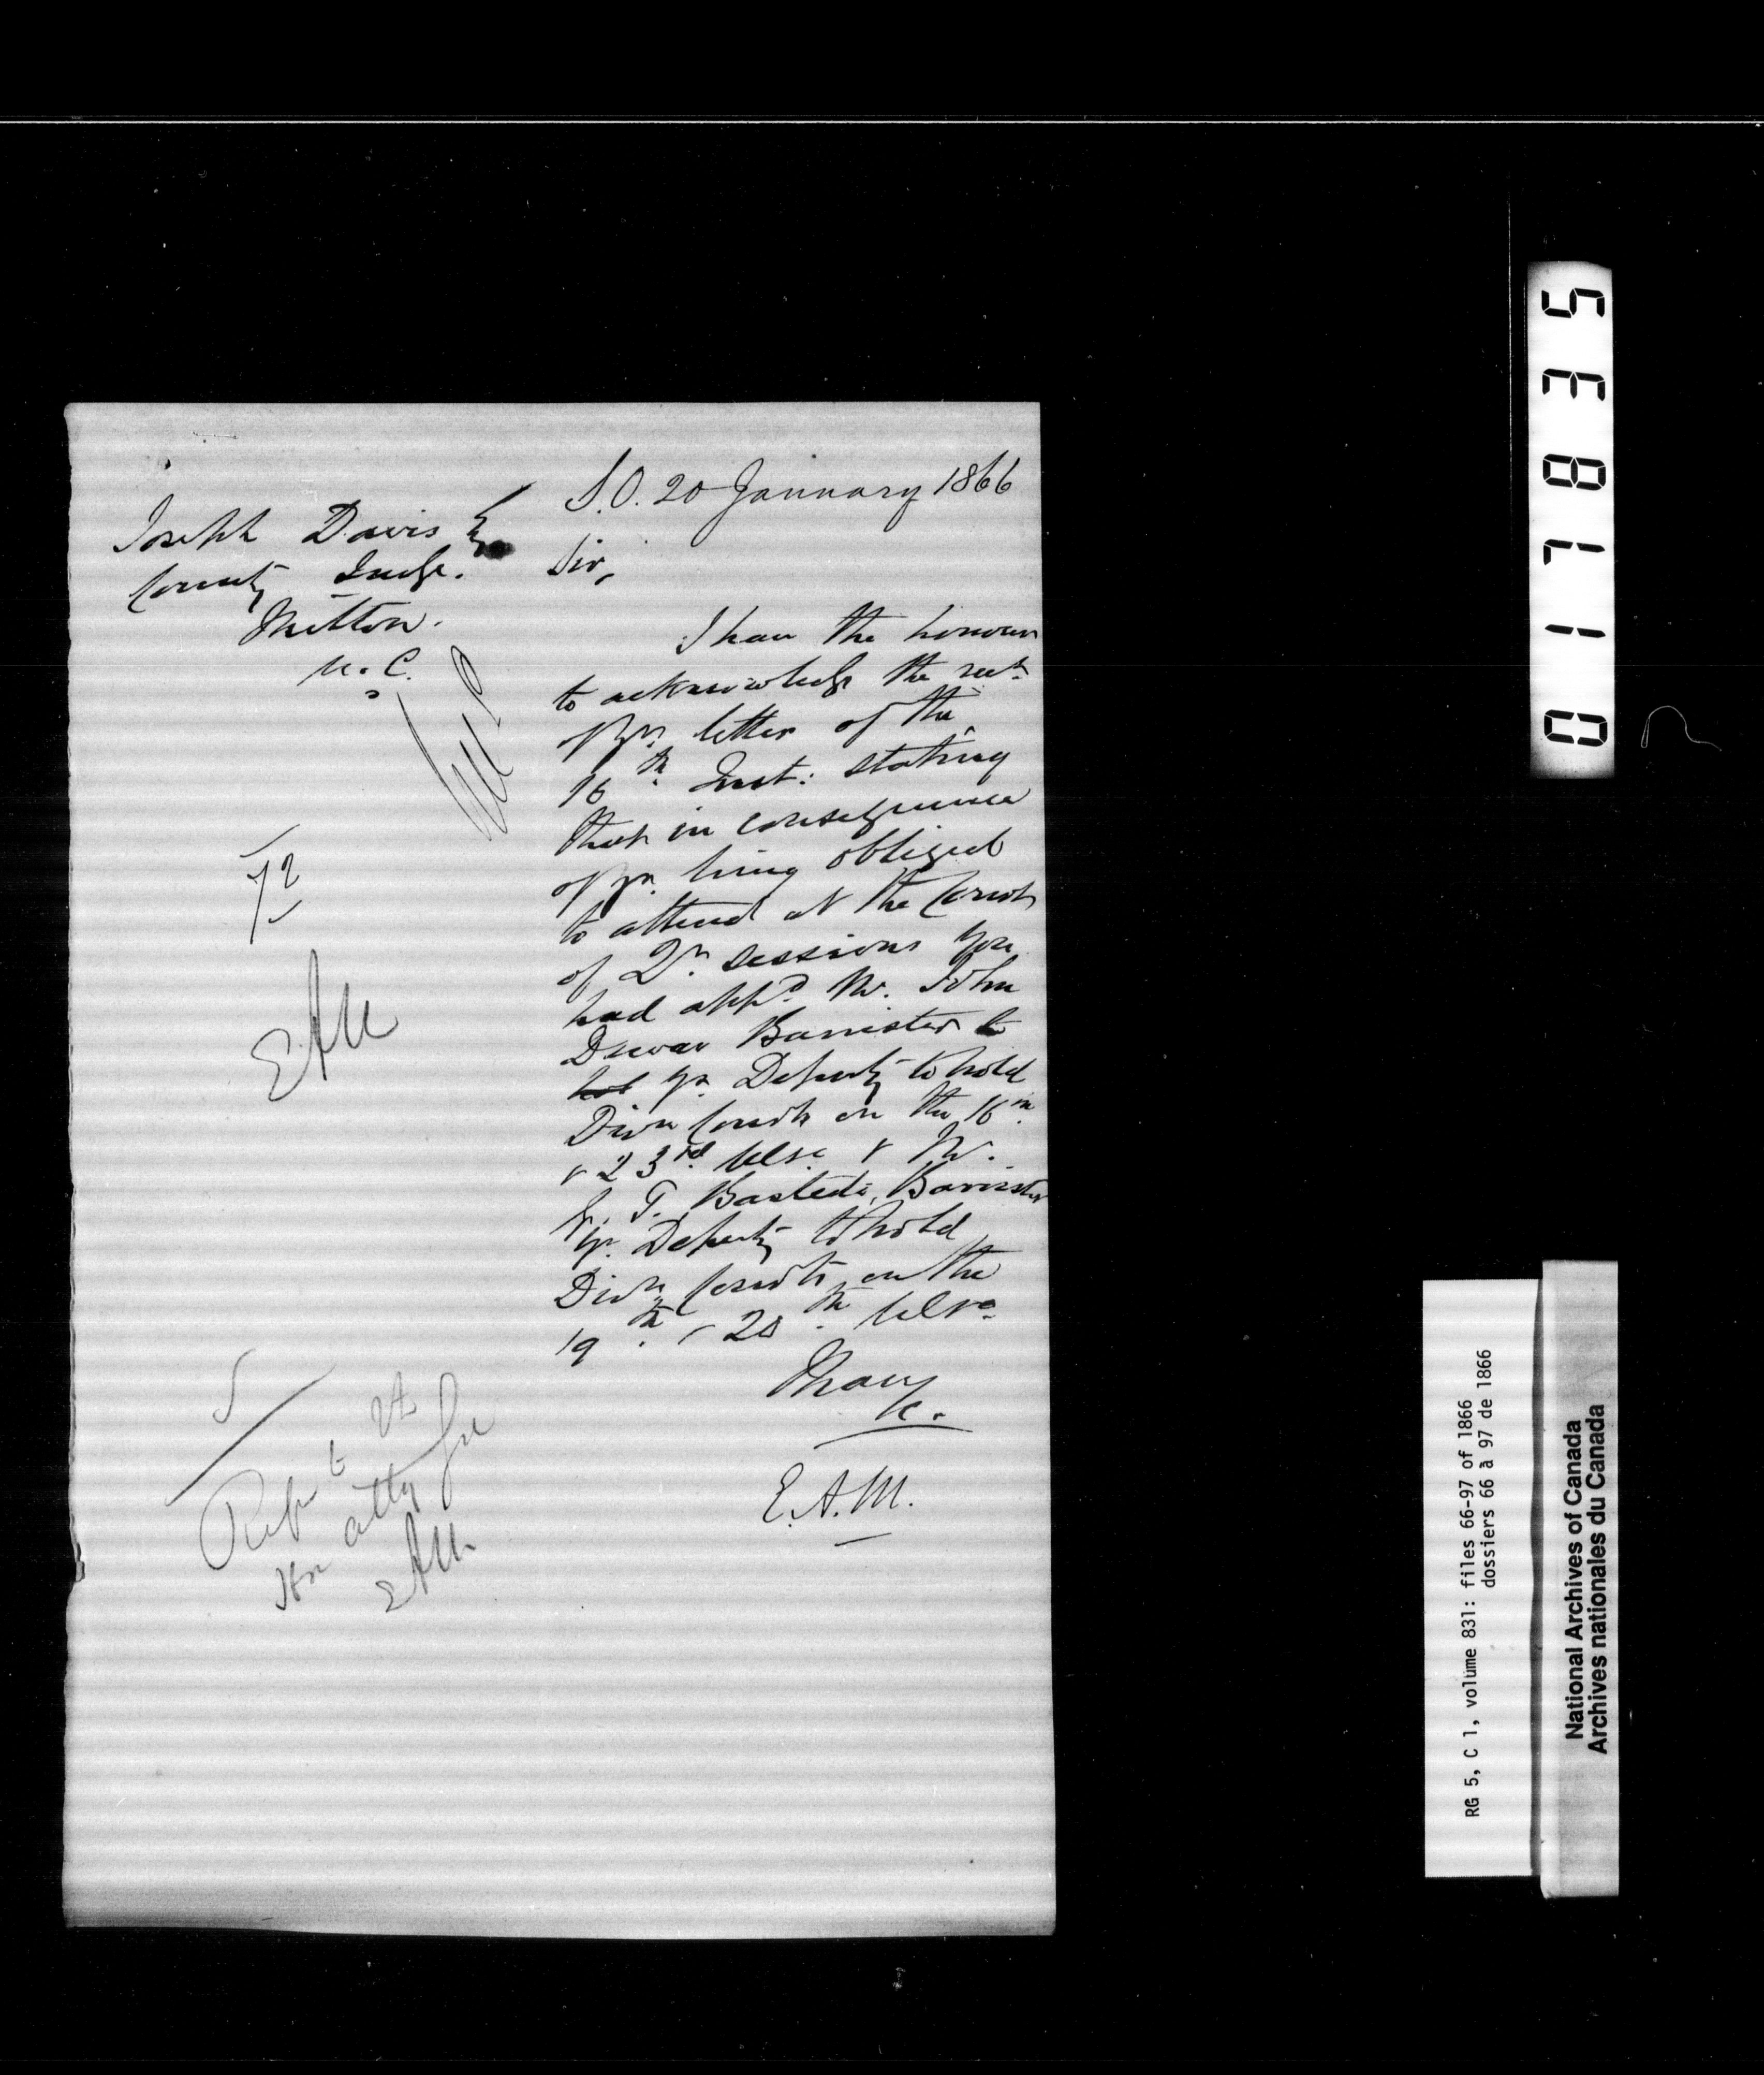 S.O. 20 January 1866
Joseph Davis Esq
County Judge.
Milton.
U.C.
Sir,
I have the honour
to acknowledge the rect.
of yr. letter of the
16th. Inst: stating
that in consequence
of yr. being obliged
to attend at the Court
of Qr. sessions you
had appd. Mr. John
Dewar Barrister to
yr. Deputy to hold
Divn Courts on the 16th.
& 23rd. & Mr.
G. T. Bastedo, Barrister
yr. Deputy to hold
Divn Courts on the
19th. & 20th. Ulto.
I have
&c.
E.A.M.
72
EAM
Refer to
Hon Atty Gen
EAM
011835
RG 5, C 1, volume 831: files 66-97 of 1866
dossiers 66 à 97 de 1866
National Archives of Canada
Archives nationales du Canada